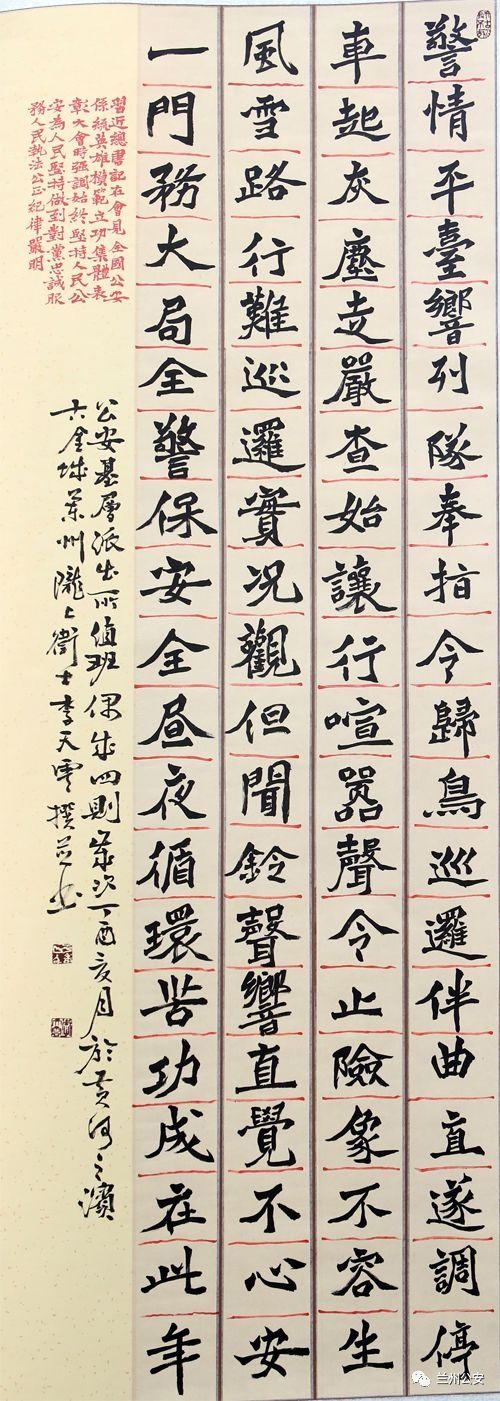 警情平臺響列隊奉指令歸鳥巡邏伴曲直遂調停
車起灰塵走嚴查始讓行喧囂聲令止險象不容生
風雪路行難巡邏實况觀但聞鈴聲響直覺不心安
一門務大局全警保安全昼夜循環苦功成在此年
習近總書記在會見全國公安
保統英雄模範立功集體表
彰大會時强調始終堅持人民公
安為人民堅持做到對黨忠誠服
務人民執法公正紀律嚴明
公安基層派出所值班偶成四則歲次丁酉亥月於黄河之濱
古金城蘭州隴上衛士李天雲撰并书
兰州公安